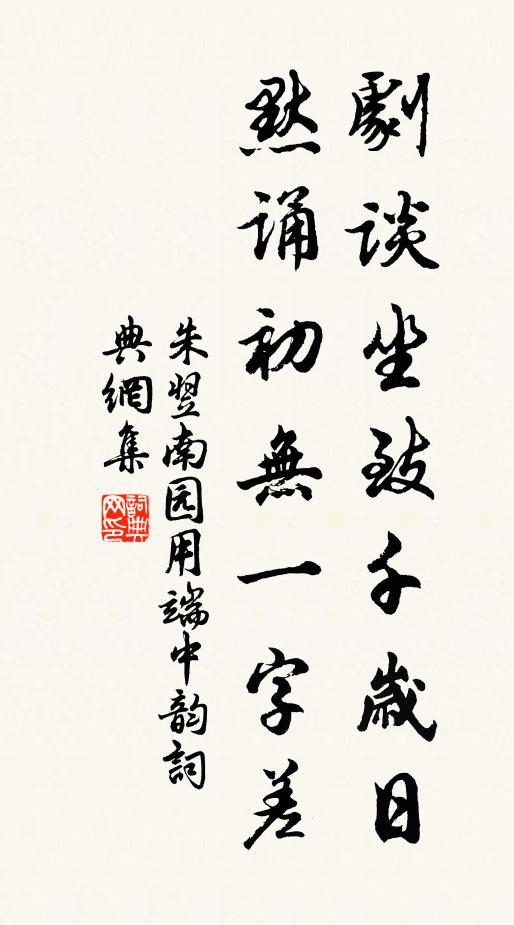 劇談坐致千歲日
默誦初無一字差
朱翌南园用端中韵詞
典網集
詞典网印